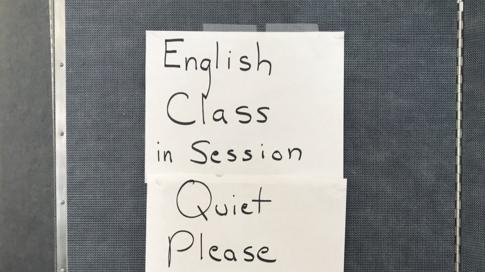 English
Class
in Session
Quiet
Please